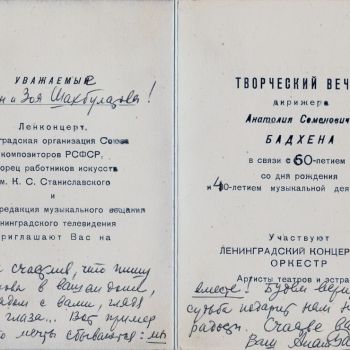 УВАЖАЕМЫЕ
и Зоя Шахбулатова!
Ленконцерт,
градская организация Союза
композиторов РСФСР,
орец работников искусств
м. К. С. Станиславского
и
редакция музыкального вещания
енинградского телевидения
приглашают Вас на
счастлив, что пишу
слова в вашем доме,
рядом с вами, глядя
глаза... Вот пример
то мечты сбываются: мы
ТВОРЧЕСКИЙ ВЕЧЕ
дирижера
Анатолия Семенович
БАДХЕНА
в связи с 60-летием
со дня рождения
и 40-летием музыкальной дея
Участвуют
ЛЕНИНГРАДСКИЙ КОНЦЕР
ОРКЕСТР
Артисты театров и эстра
вместе! Будем вери
судьба подарит нам н
радость. Счастье ва
Ваш Анат